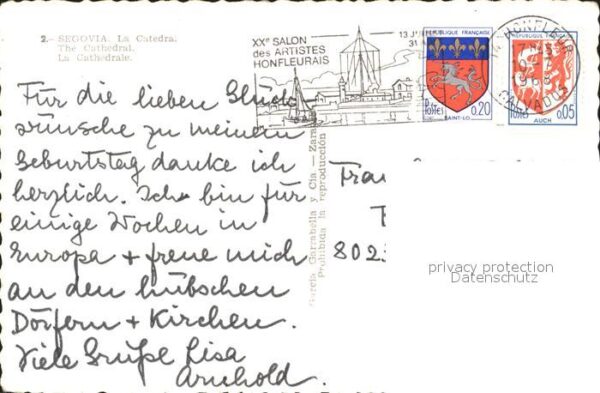 2.- SEGOVIA. La Catedral.
The Cathedral.
La Cathédrale.
Für die lieben Glück
wünsche zu meinem
Geburtstag danke ich
herzlich. Ich bin für
einige Wochen in
Europa + freue mich
an den hübschen
Dörfern + Kirchen.
Viele Grüße Lisa
Arnhold.
XXe SALON
des ARTISTES
HONFLEURAIS
13 JU
31
REPUBLIQUE FRANÇAISE
POSTES
0,20
SAINT-LO
REPUBLIQUE FRANÇAISE
POSTES
0,05
AUCH
14 HONFLEUR
CALVADOS
García Garrabella y Cía - Zara
Prohibida la reproducción
Frau
802
privacy protection
Datenschutz